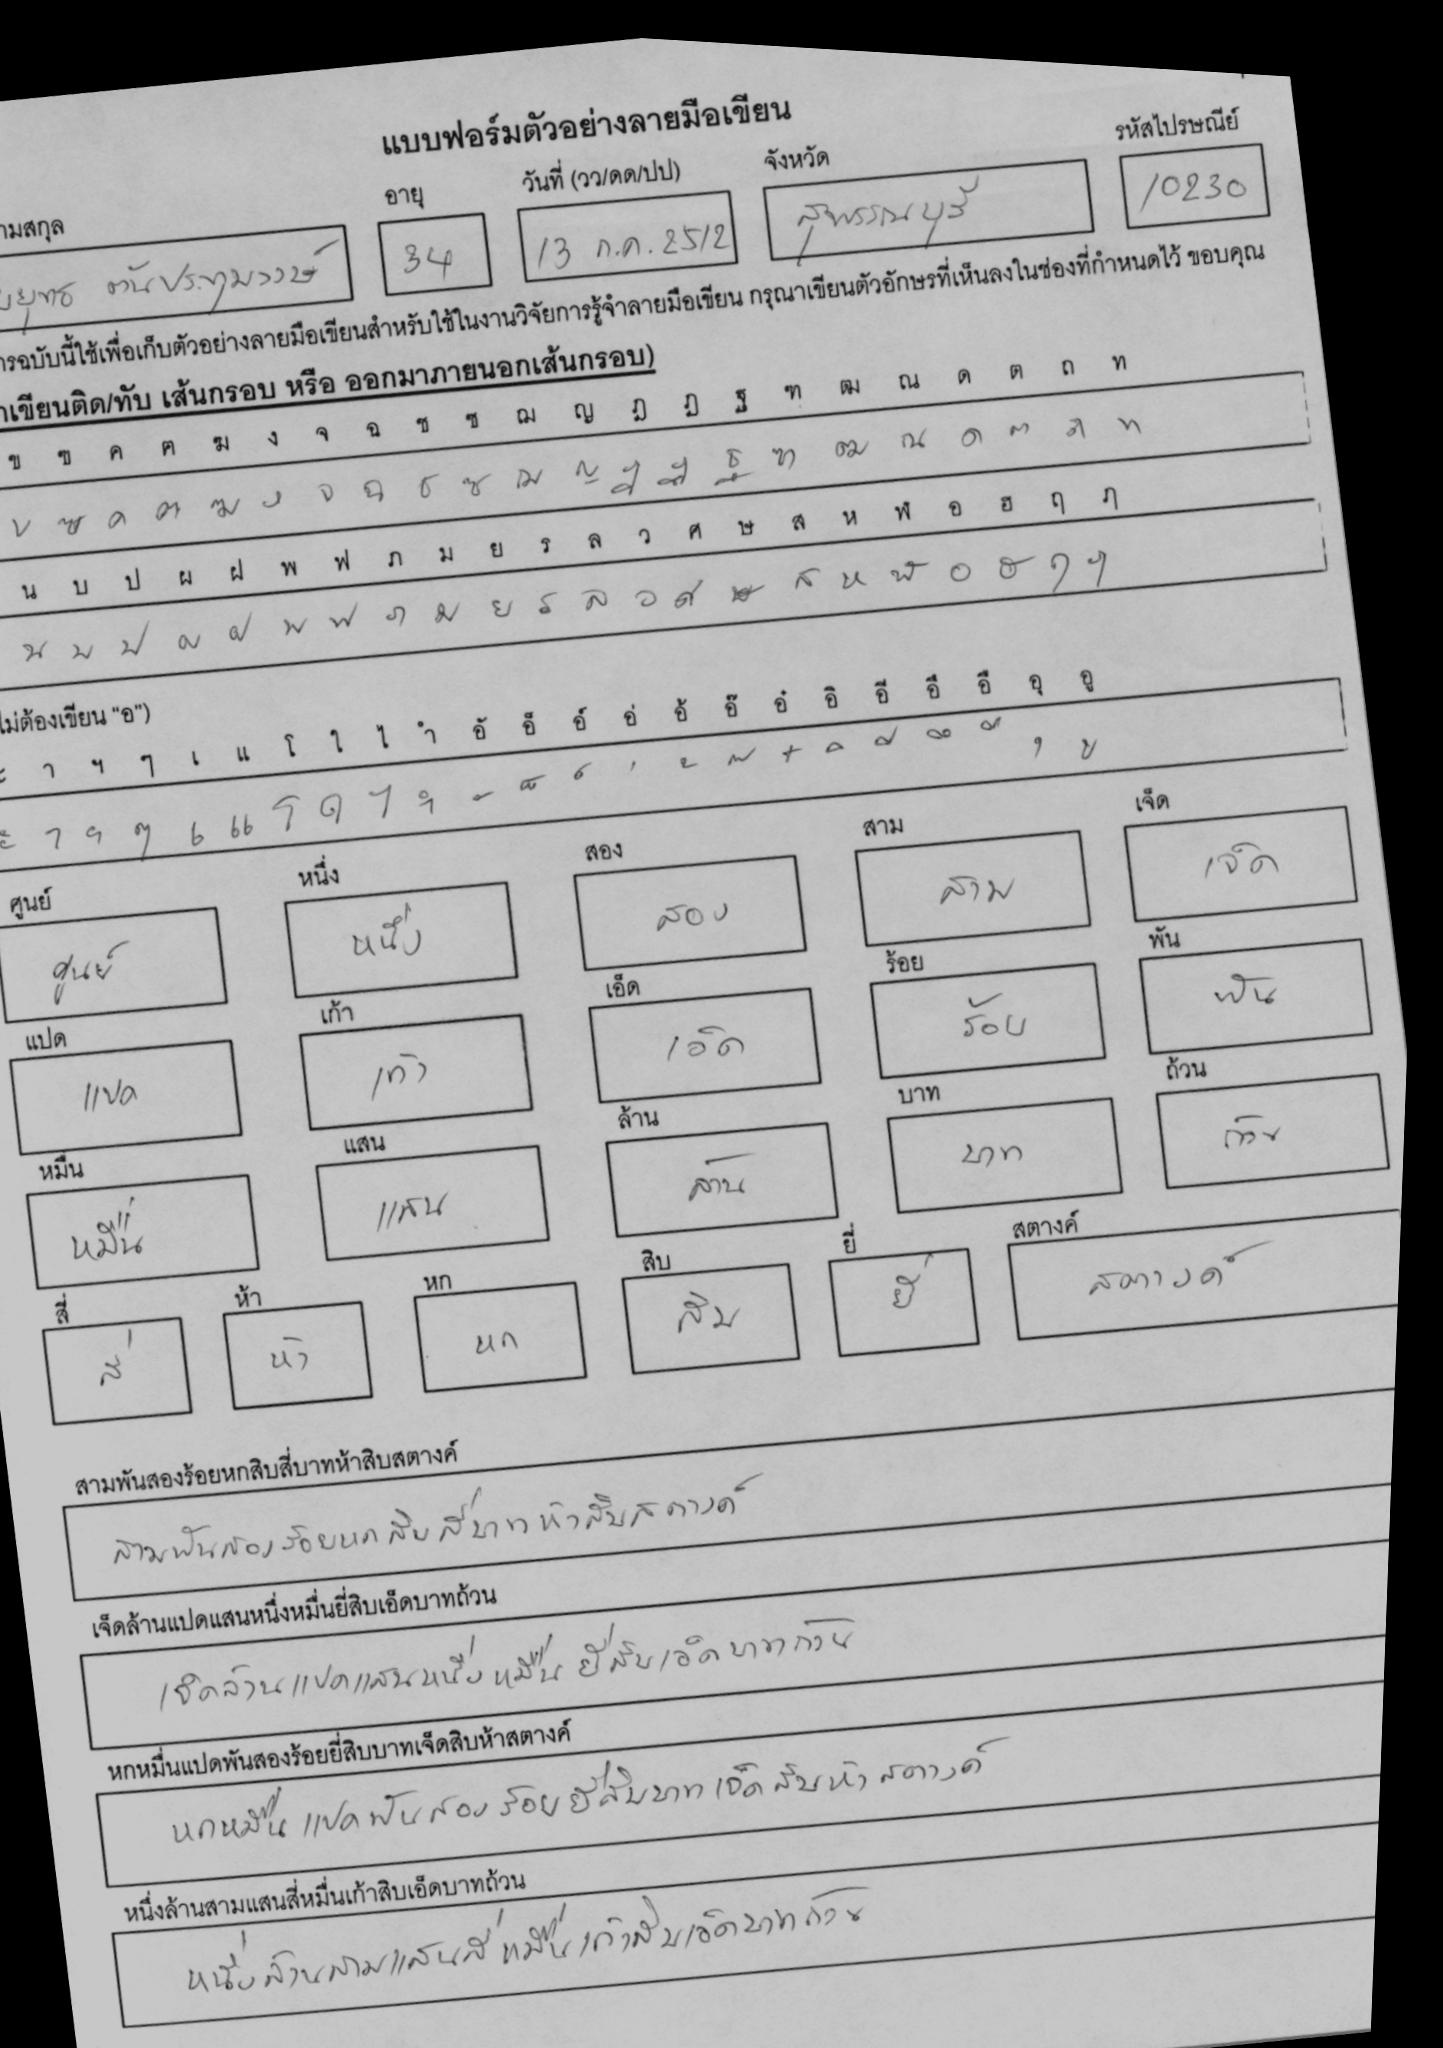 แบบฟอร์มตัวอย่างลายมือเขียน
ามสกุล อายุ วันที่ (วว/ดด/ปป) จังหวัด รหัสไปรษณีย์
34 13 ก.ค. 2512 สุพรรณบุรี 10230
ารฉบับนี้ใช้เพื่อเก็บตัวอย่างลายมือเขียนสำหรับใช้ในงานวิจัยการรู้จำลายมือเขียน กรุณาเขียนตัวอักษรที่เห็นลงในช่องที่กำหนดไว้ ขอบคุณ
าเขียนติด/ทับ เส้นกรอบ หรือ ออกมาภายนอกเส้นกรอบ)
ข ฃ ค ฅ ฆ ง จ ฉ ช ซ ฌ ญ ฎ ฏ ฐ ฑ ฒ ณ ด ต ถ ท
ข ฃ ค ฅ ฆ ง จ ฉ ช ซ ฌ ญ ฎ ฏ ฐ ฑ ฒ ณ ด ต ถ ท
น บ ป ผ ฝ พ ฟ ภ ม ย ร ล ว ศ ษ ส ห ฬ อ ฮ ฤ ฦ
น บ ป ผ ฝ พ ฟ ภ ม ย ร ล ว ศ ษ ส ห ฬ อ ฮ ฤ ฦ
ไม่ต้องเขียน "อ")
ะ า ฯ ๆ เ แ โ ใ ไ ำ อั อ็ อ์ อ่ อ้ อ๊ อ๋ อิ อี อึ อื อุ อู
ะ า ฯ ๆ เ แ โ ใ ไ ำ ั ็ ์ ่ ้ ๊ ๋ ิ ี ึ ื ุ ู
ศูนย์ หนึ่ง สอง สาม เจ็ด
ศูนย์ หนึ่ง สอง สาม เจ็ด
แปด เก้า เอ็ด ร้อย พัน
แปด เก้า เอ็ด ร้อย พัน
หมื่น แสน ล้าน บาท ถ้วน
หมื่น แสน ล้าน บาท ถ้วน
สี่ ห้า หก สิบ ยี่ สตางค์
สี่ ห้า หก สิบ ยี่ สตางค์
สามพันสองร้อยหกสิบสี่บาทห้าสิบสตางค์
สามพันสองร้อยหกสิบสี่บาทห้าสิบสตางค์
เจ็ดล้านแปดแสนหนึ่งหมื่นยี่สิบเอ็ดบาทถ้วน
เจ็ดล้านแปดแสนหนึ่งหมื่นยี่สิบเอ็ดบาทถ้วน
หกหมื่นแปดพันสองร้อยยี่สิบบาทเจ็ดสิบห้าสตางค์
หกหมื่นแปดพันสองร้อยยี่สิบบาทเจ็ดสิบห้าสตางค์
หนึ่งล้านสามแสนสี่หมื่นเก้าสิบเอ็ดบาทถ้วน
หนึ่งล้านสามแสนสี่หมื่นเก้าสิบเอ็ดบาทถ้วน